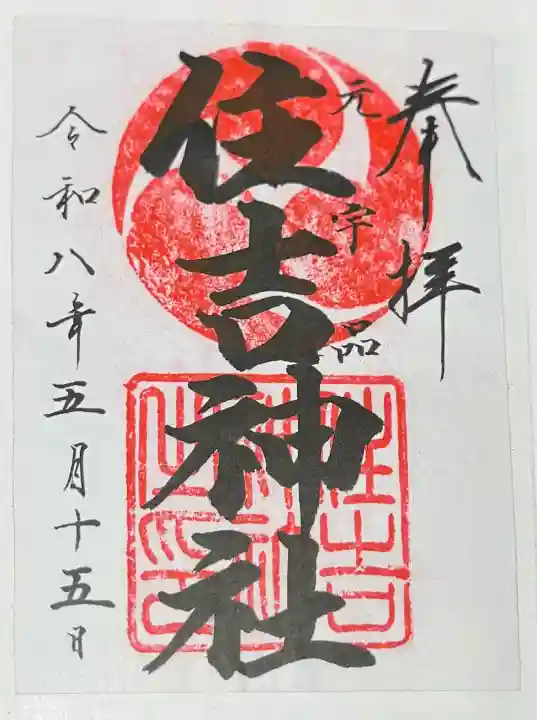 奉拝
元宇品
住吉神社
住吉神社之印
令和八年五月十五日